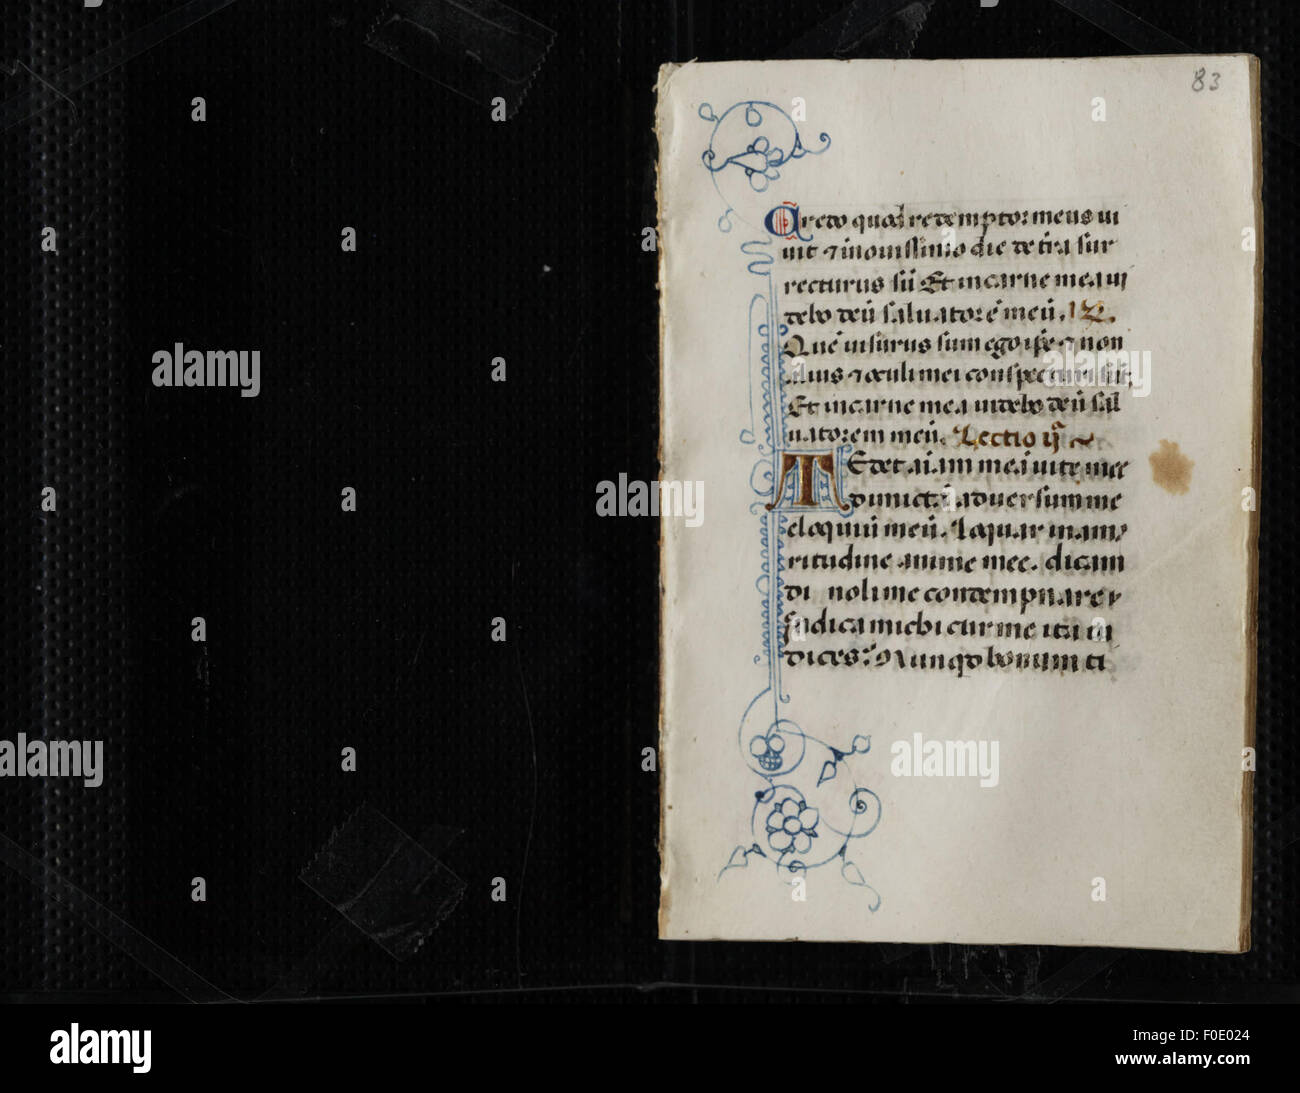 83
Credo quod redemptor meus vi
uit ⁊ in nouissimo die de tr̃a sur
recturus sũ Et in carne mea ui
debo deũ saluatorẽ meũ. V̷.
Quẽ uisurus sum ego ip̃e ⁊ non
alius ⁊ oculi mei conspecturi sũt
Et in carne mea uidebo deũ sal
uatorem meũ. Lectio ij
TEdet aĩam meã uite mee
dimictã aduersum me
eloquiũ meũ. Loquar in ama
ritudine anime mee. dicam
di noli me condempnare ⁊
Indica michi cur me ita iu
dices? Nunqd bonum ti
alamy stock photo
alamy
a
Image ID: F0E024
www.alamy.com